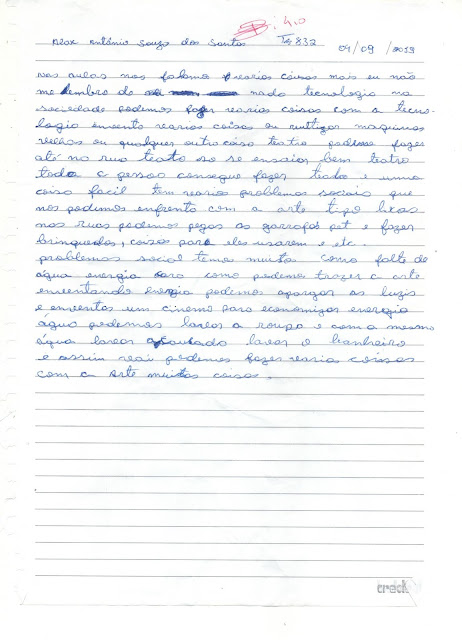 4,0
Alax Antônio Souza dos Santos Ts 832 04/09/2019
nas aulas nos falamo varias coisas mais eu não
me lembro de nada tecnologia na
sociedade podemos fazer varias coisas com a tecno-
logia envento varias coisas ou maquinas
velhas ou qualquer outra coisa teatro podemos fazer
até na rua teatro so se ensaiar bem teatro
toda a pessoa consegue fazer tudo e uma
coisa facil tem varios problemas sociais que
nos podemos enfrenta com a arte tipo lixos
nas ruas podemos pegas as garrafas pet e fazer
brinquedos, coisas para eles usarem e etc.
problemas social temos muitos como falta de
água energia como podemos trazer a arte
enventando energia podemos apargar as luzis
e enventas um cinema para economizar energia
água podemos lavar a roupa e com a mesma
água lavar lavar o banheiro
e assim vai podemos fazer varia coissas
com a Arte muitas coisas.
credeal